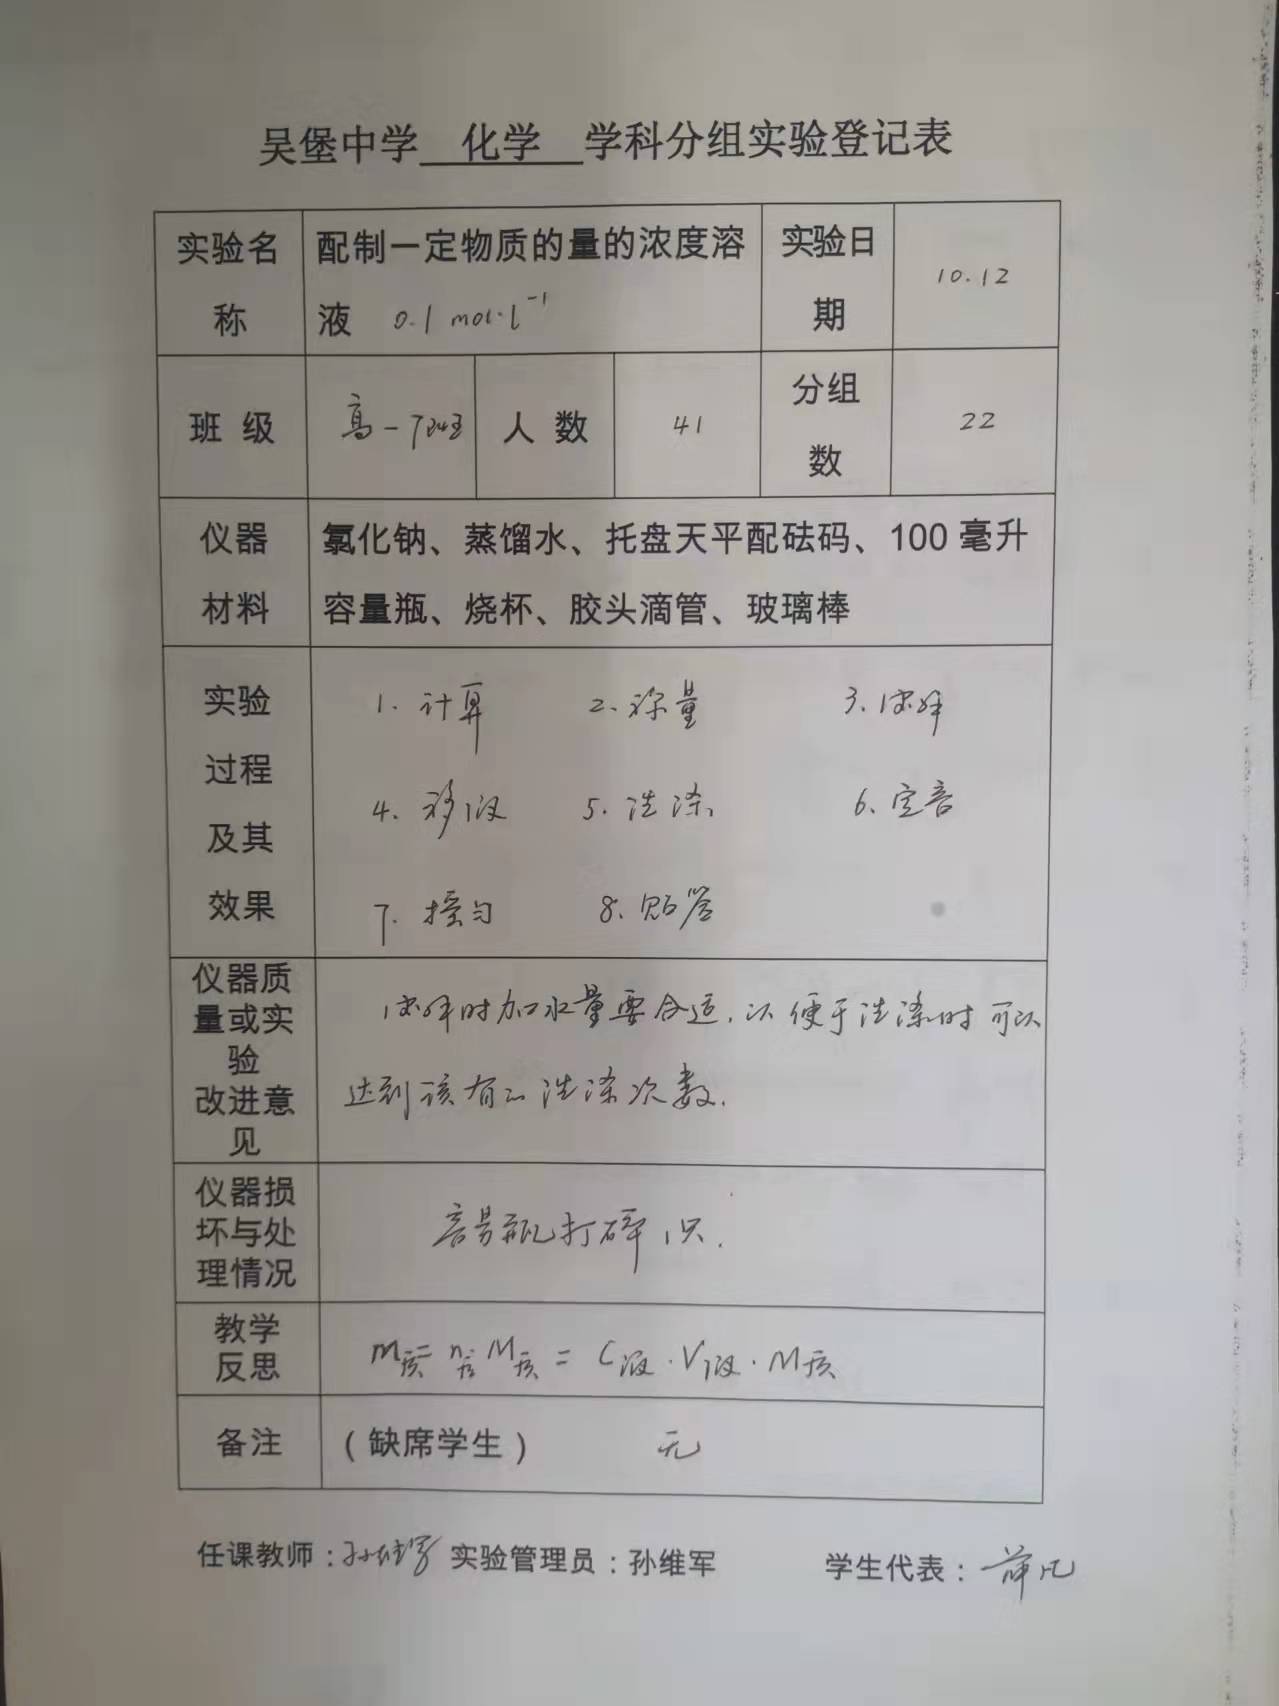 吴堡中学 化学 学科分组实验登记表
实验名称
配制一定物质的量的浓度溶
液 0.1 mol·l⁻¹
实验日期
10.12
班 级
高一7班
人 数
41
分组数
22
仪器
材料
氯化钠、蒸馏水、托盘天平配砝码、100 毫升
容量瓶、烧杯、胶头滴管、玻璃棒
实验
过程
及其
效果
1. 计算 2. 称量 3. 溶解
4. 移液 5. 洗涤 6. 定容
7. 摇匀 8. 贴签
仪器质
量或实
验
改进意
见
溶解时加水量要合适,以便于洗涤时可以
达到该有的洗涤次数.
仪器损
坏与处
理情况
容量瓶打碎1只.
教学
反思
m质=n质·M质=C液·V液·M质
备注
(缺席学生) 无
任课教师: 实验管理员:孙维军 学生代表:薛凡